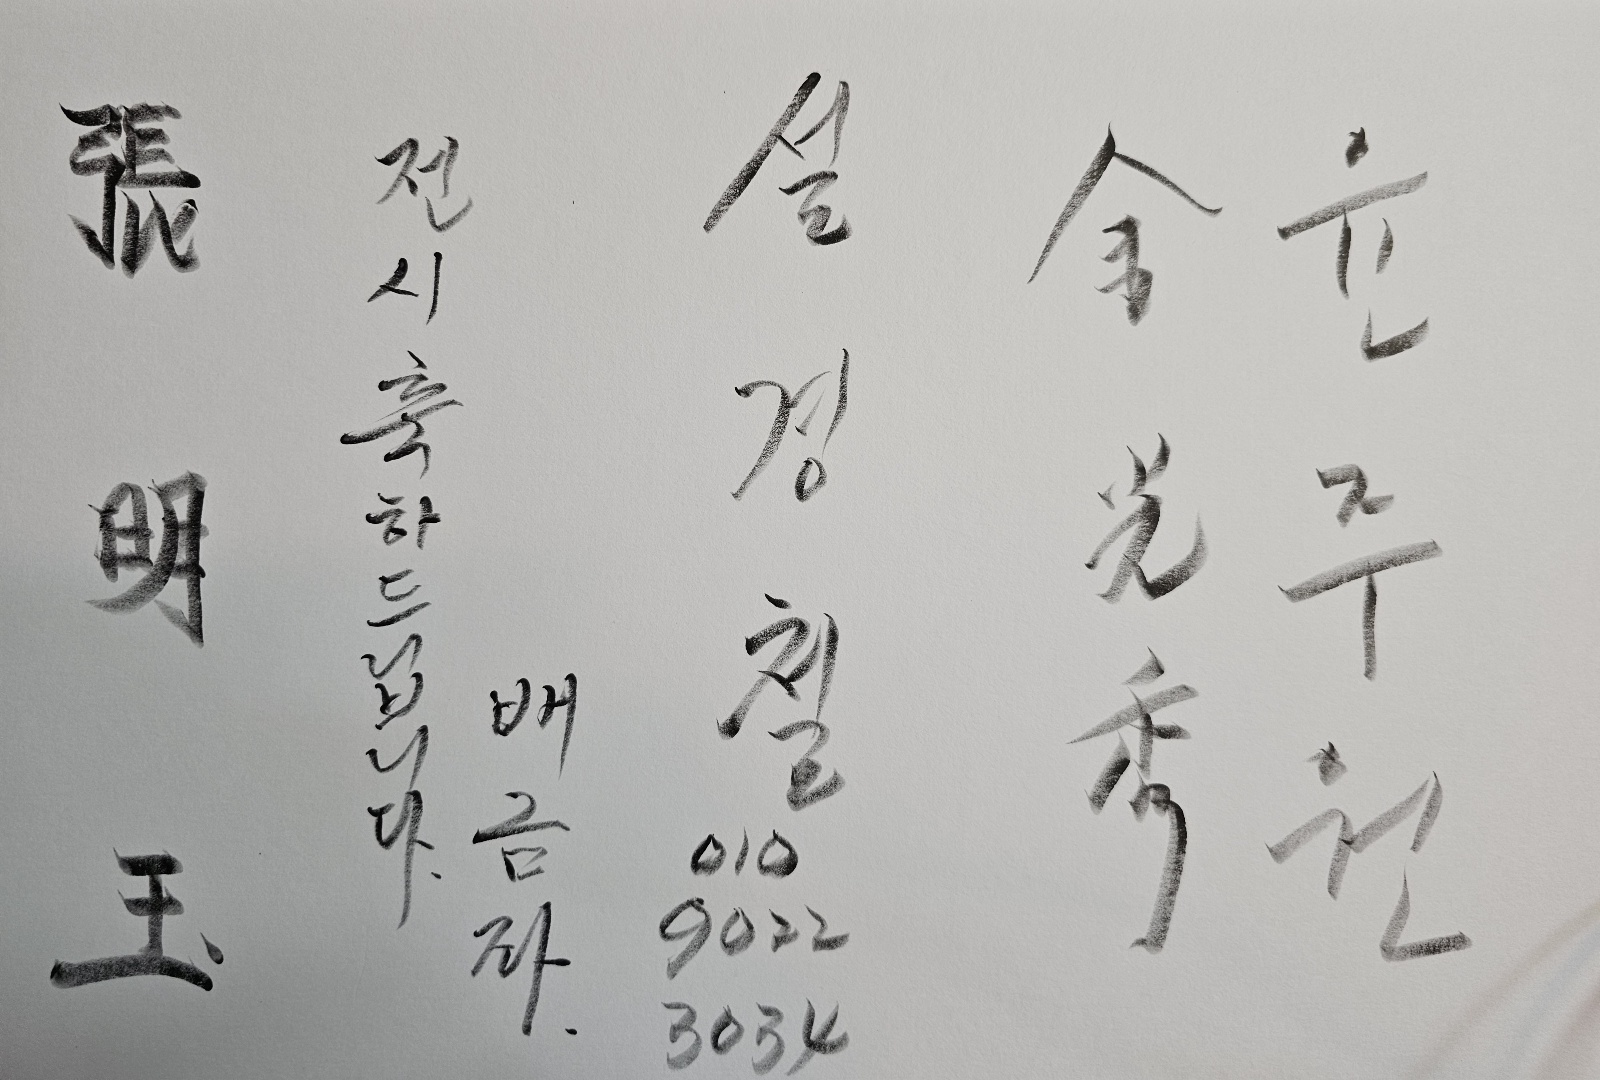 윤주헌
金光秀
설경철
010
9022
3034
전시축하드립니다.
배금자.
張明玉